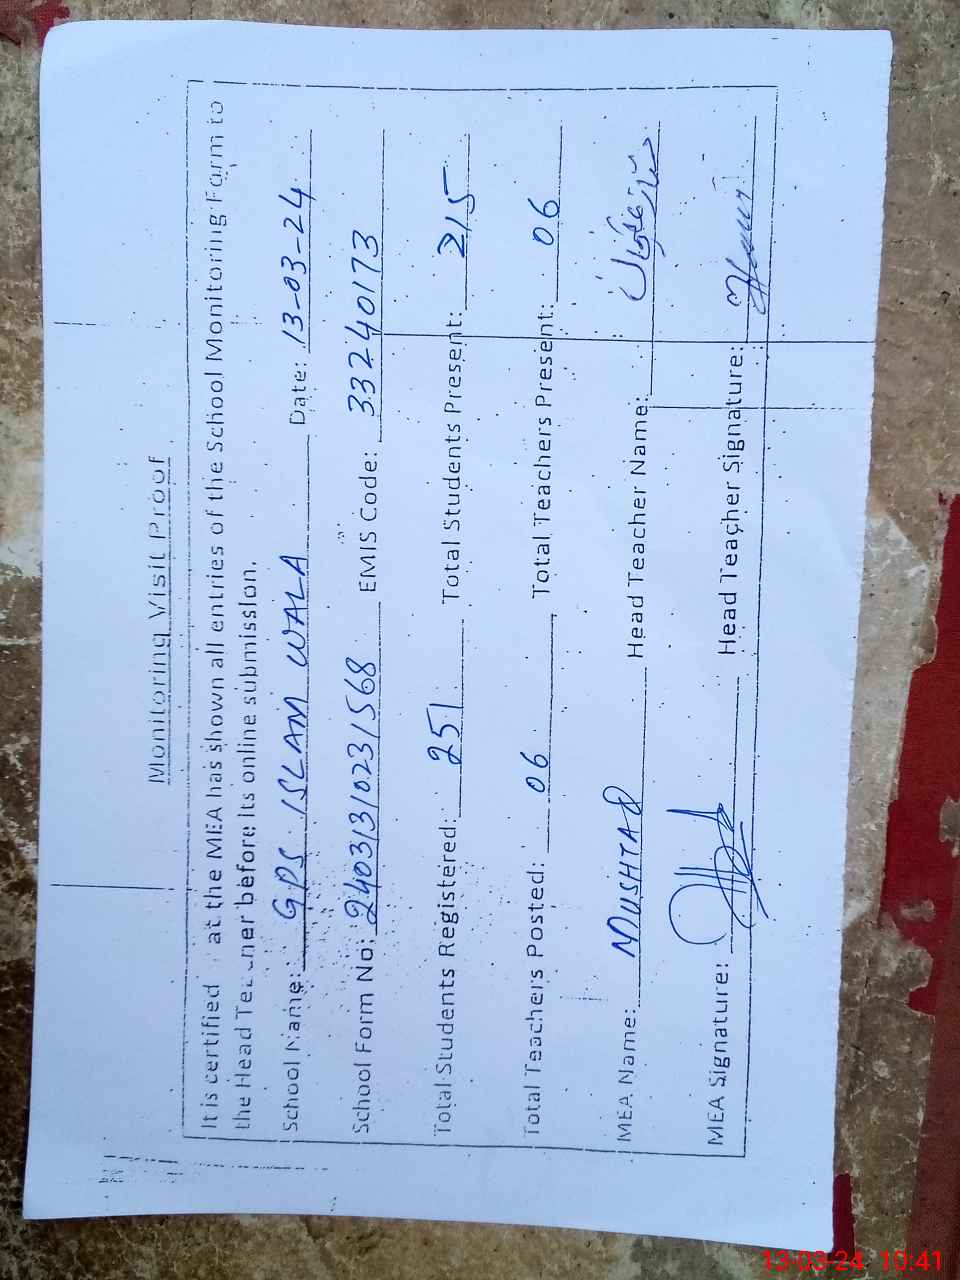 Monitoring Visit Proof
It is certified at the MEA has shown all entries of the School Monitoring Form to
the Head Teacher before its online submission.
School Name: GPS ISLAM WALA Date: 13-03-24
School Form No: 2403131023/568 EMIS Code: 33240173
Total Students Registered: 251 Total Students Present: 215
Total Teachers Posted: 06 Total Teachers Present: 06
MEA Name: MUSHTAQ Head Teacher Name:
MEA Signature: Head Teacher Signature:
13-03-24 10:41